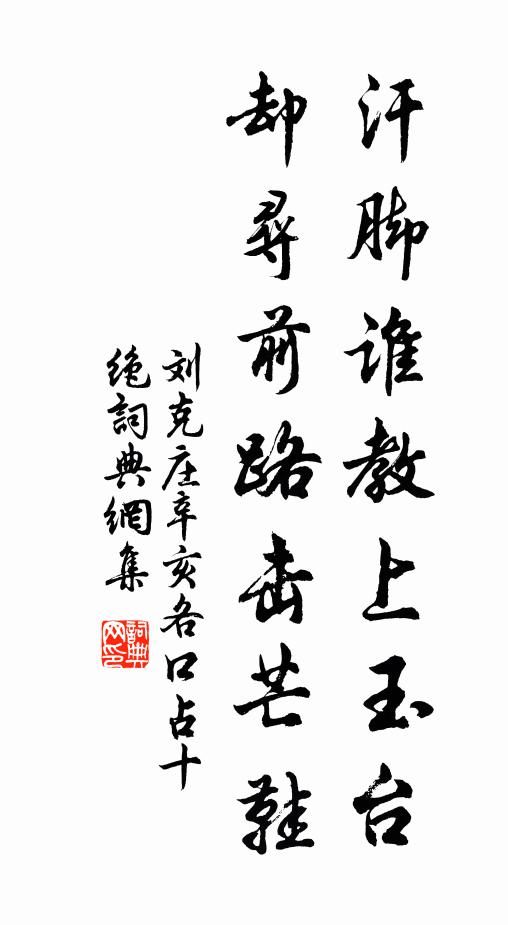 汗脚谁教上玉台
却尋前路击芒鞋
刘克庄辛亥各口占十
绝詞典網集
詞典网印